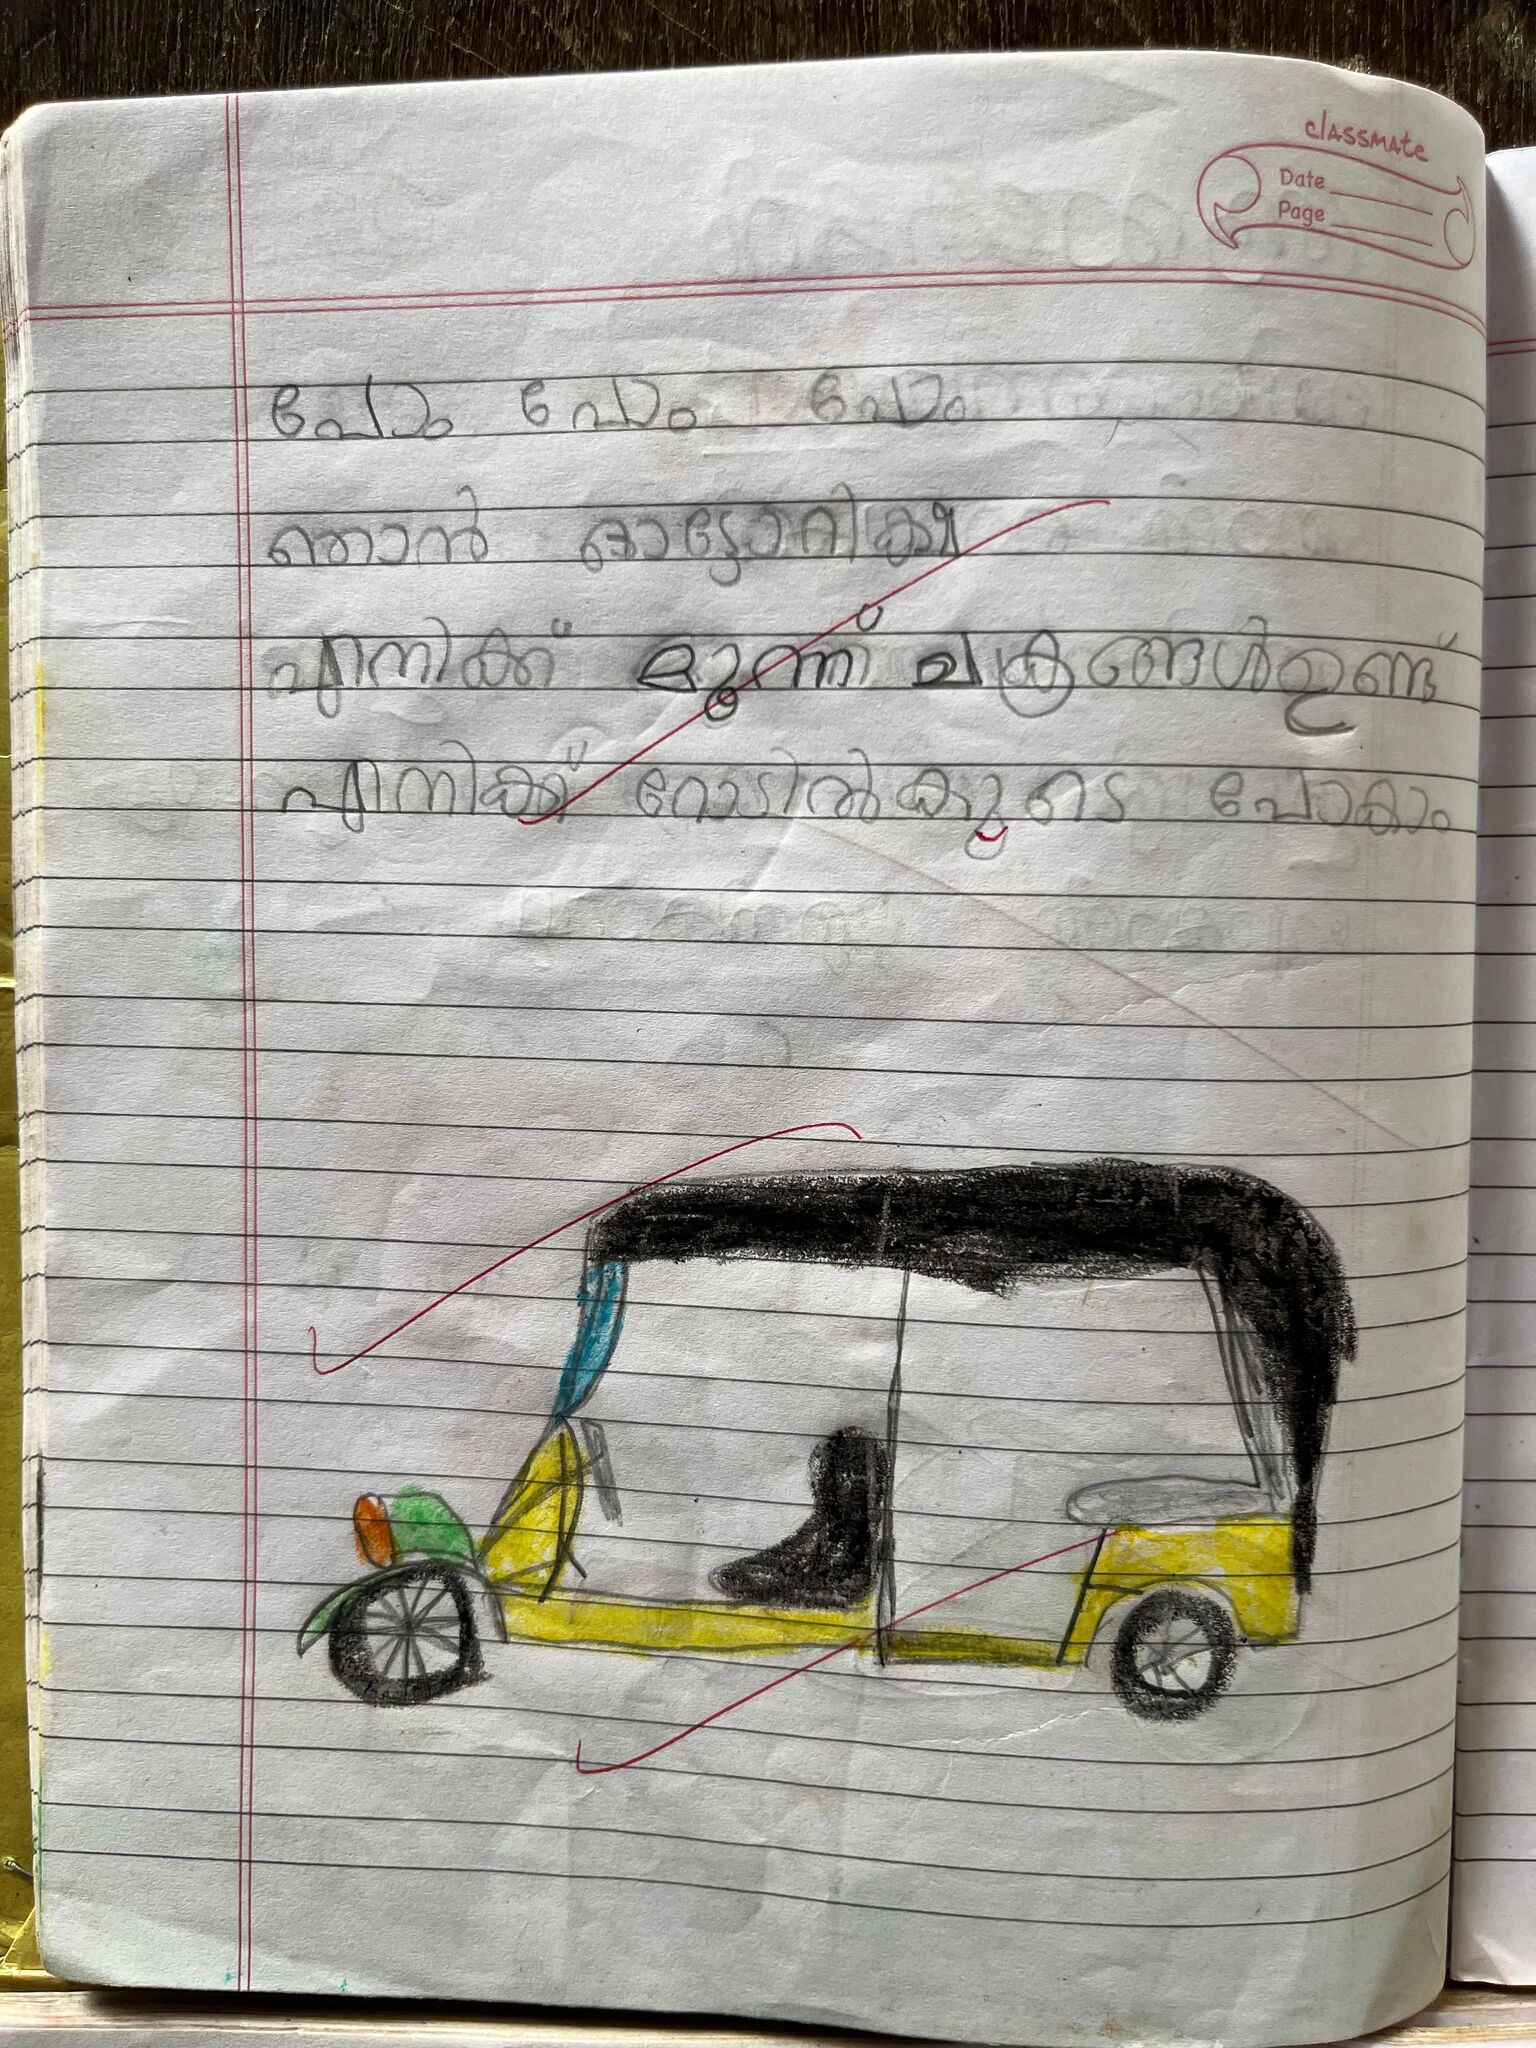 classmate
Date
Page
പോം പോം പോം
ഞാൻ ഓട്ടോറിക്ഷ
എനിക്ക് മൂന്ന് ചക്രങ്ങൾഉണ്ട്
എനിക്ക് റോടിൽകൂടെ പോകാം